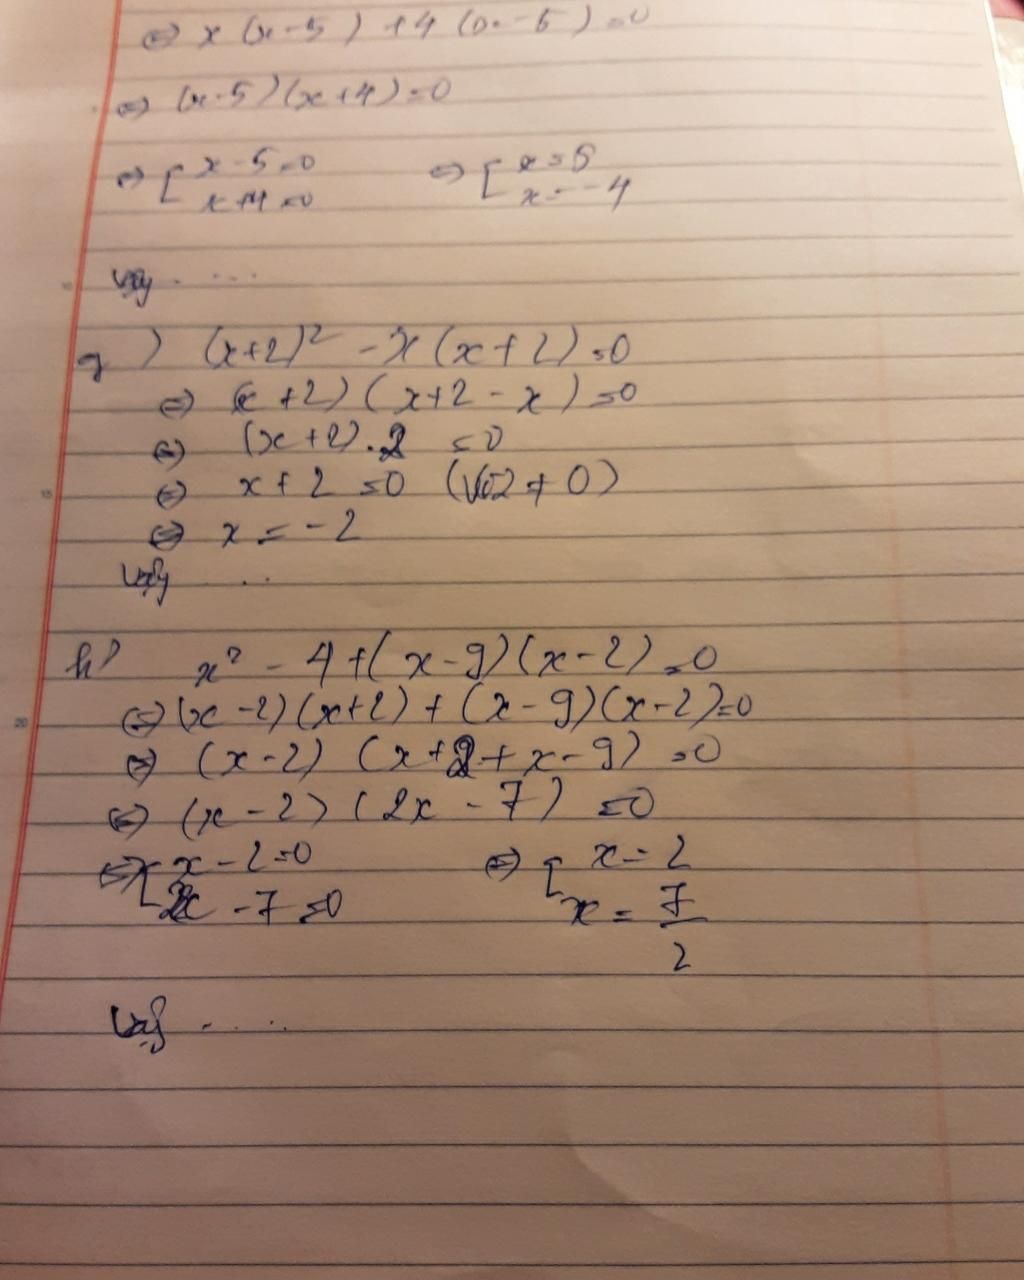 ⇔ x(x-5) + 4(x-5) = 0
⇔ (x-5)(x+4) = 0
⇔ [ x-5=0 ⇔ [ x=5
x+4=0 x=-4
Vậy . ...
g) (x+2)² - x(x+2) = 0
⇔ (x+2)(x+2-x) = 0
⇔ (x+2).2 = 0
⇔ x+2=0 (Vì 2≠0)
⇔ x = -2
Vậy ..
h) x² - 4 + (x-9)(x-2) = 0
⇔ (x-2)(x+2) + (x-9)(x-2) = 0
⇔ (x-2)(x+2+x-9) = 0
⇔ (x-2)(2x-7) = 0
⇔ [ x-2=0 ⇔ [ x=2
2x-7=0 x = 7/2
Vậy . ....